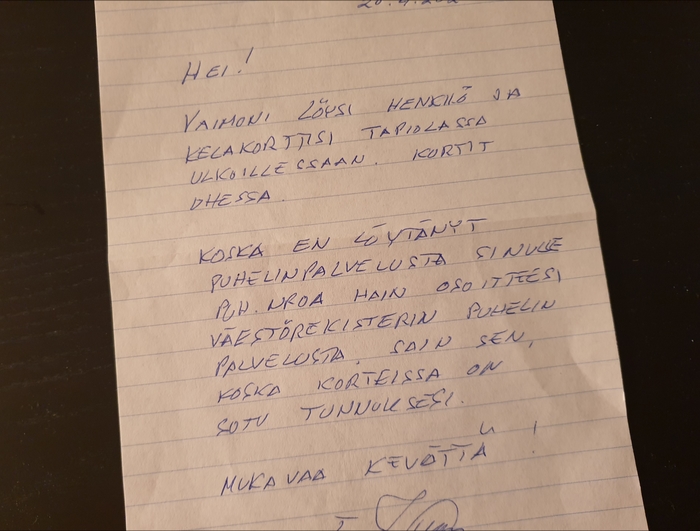 HEI!
VAIMONI LÖYSI HENKILÖ JA
KELAKORTTISI TAPIOLASSA
ULKOILLESSAAN. KORTIT
OHESSA.
KOSKA EN LÖYTÄNYT
PUHELINPALVELUSTA SINULLE
PUH.NROA HAIN OSOITTEESI
VÄESTÖREKISTERIN PUHELIN
PALVELUSTA. SAIN SEN,
KOSKA KORTEISSA ON
SOTU TUNNUKSESI.
MUKAVAA KEVÄTTÄ!